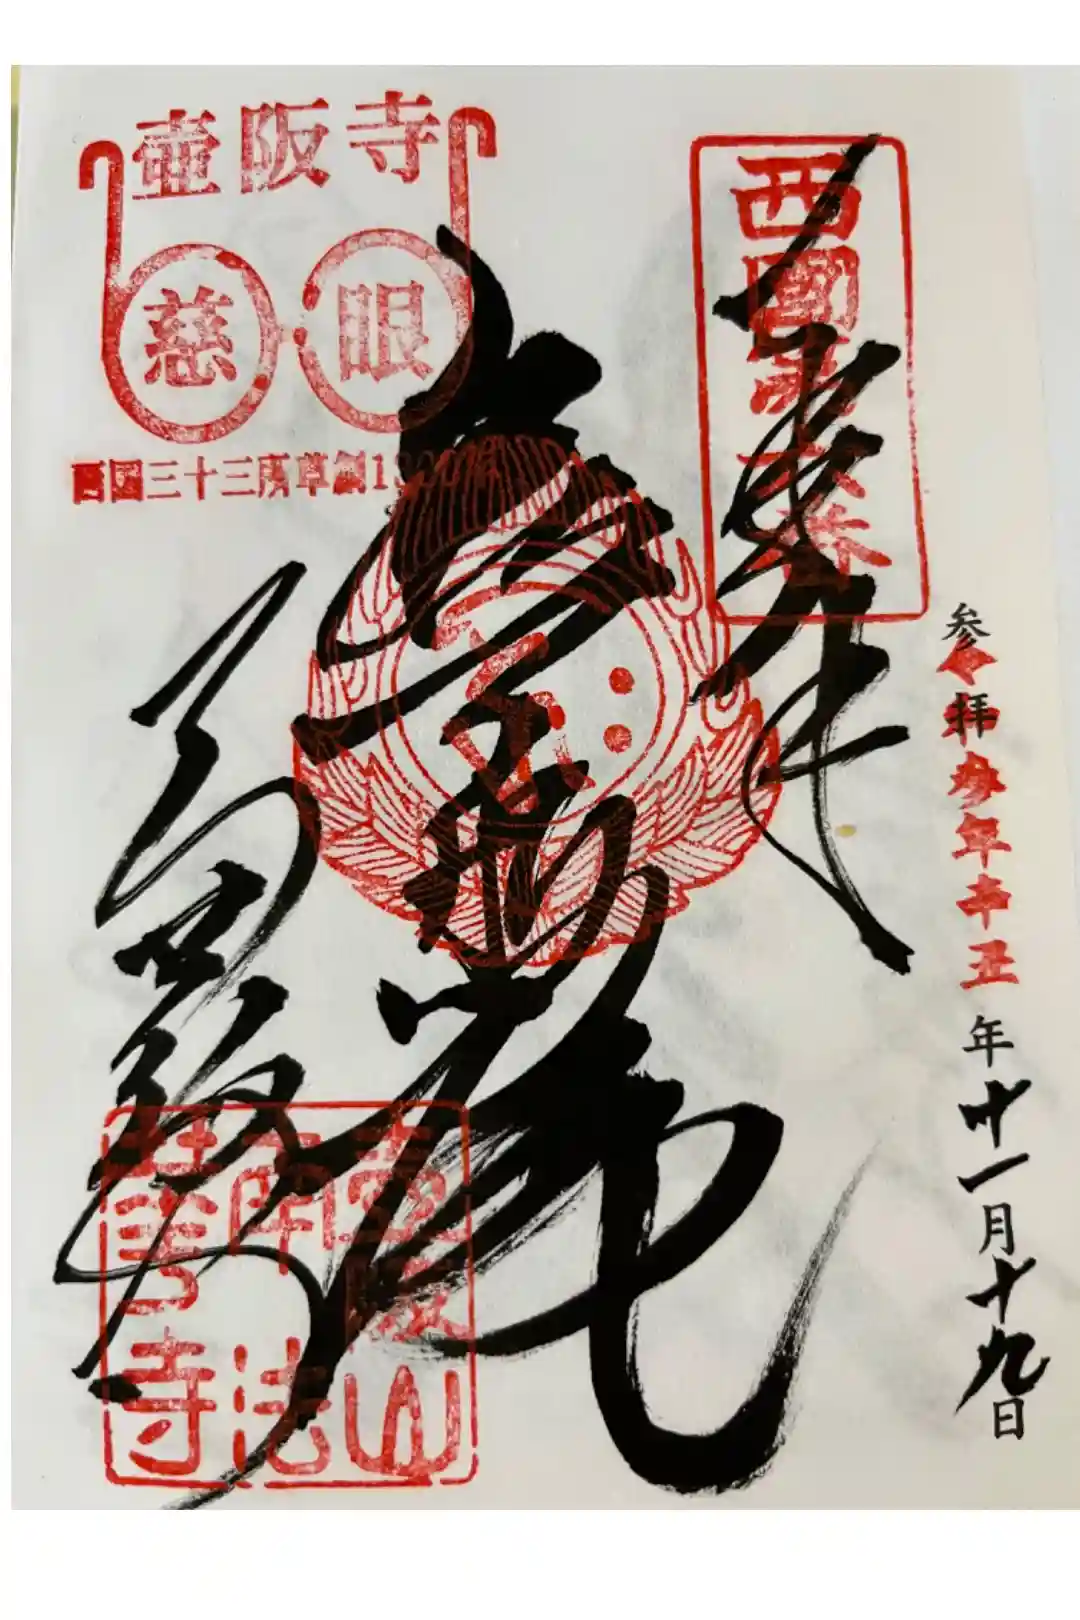 壷阪寺
慈眼
西国三十三所草創1300年
西國第六番
奉拝
参拝
令和参年辛丑
年十一月十九日
壷阪山南法華寺